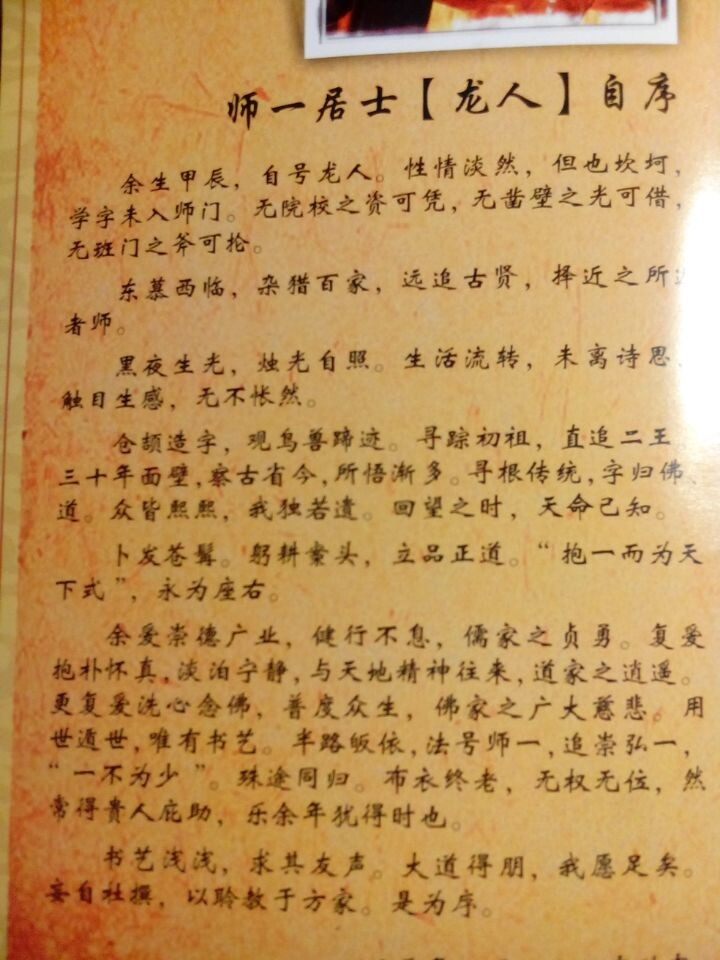 师一居士【龙人】自序
余生甲辰，自号龙人。性情淡然，但也坎坷，
学字未入师门。无院校之资可凭，无凿壁之光可借，
无班门之斧可抡。
东慕西临，杂猎百家，远追古贤，择近之所
者师。
黑夜生光，烛光自照。生活流转，未离诗思、
触目生感，无不怅然。
仓颉造字，观鸟兽蹄迹。寻踪初祖，直追二王。
三十年面壁，察古省今，所悟渐多。寻根传统，字归佛、
道。众皆熙熙，我独若遗。回望之时，天命已知。
卜发苍髯。躬耕案头，立品正道。“抱一而为天
下式”，永为座右。
余爱崇德广业，健行不息，儒家之贞勇。复爱
抱朴怀真，淡泊宁静，与天地精神往来，道家之逍遥。
更复爱洗心念佛，普度众生，佛家之广大慈悲。用
世遁世，唯有书艺。半路皈依，法号师一，追崇弘一，
“一不为少”。殊途同归。布衣终老，无权无位，然
常得贵人庇助，乐余年犹得时也。
书艺浅浅，求其友声。大道得朋，我愿足矣。
妄自杜撰，以聆教于方家。是为序。